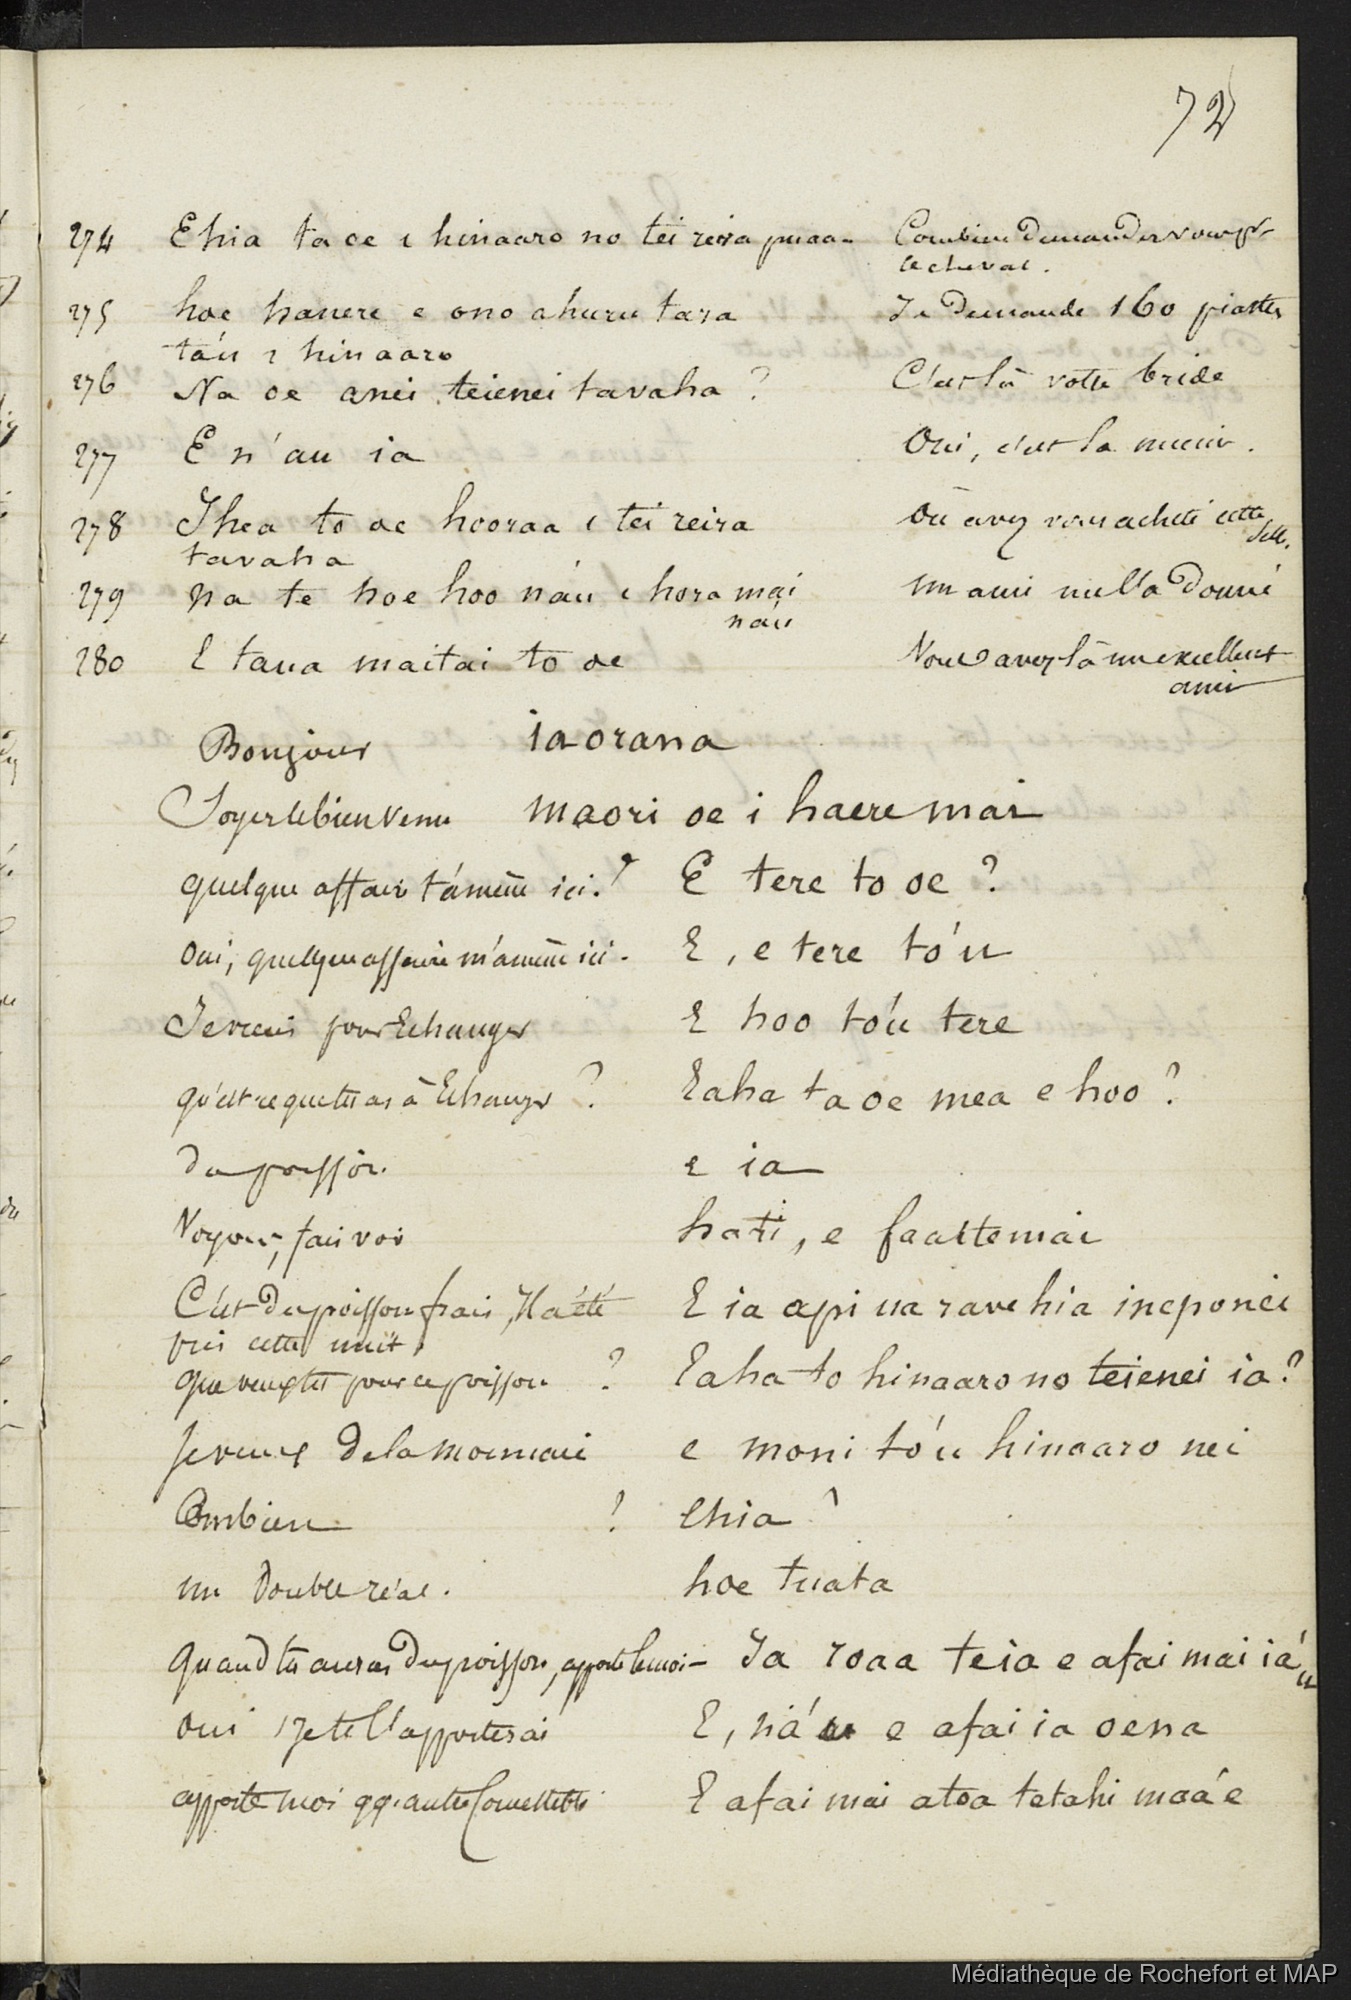 72
274 Ehia ta oe i hinaaro no tei reira puaa- Combien demandez vous pr
le cheval.
275 hoe hanere e ono ahuru tara Je demande 160 piastres
ta'u i hinaaro
276 Na oe anei teienei tavaha? C'est là votre bride
277 E n'au ia Oui, c'est la mienne.
278 Ihea to oe hooraa i tei reira Où avez vous acheté cette
tavaha selle.
279 na te hoe hoo náu i hora mai un ami me l'a donné
náu
280 E taua maitai to oe Vous avez là un excellent
ami
Bonjour ia orana
Soyez le bien venu maori oe i haere mai
quelque affaire t'amène ici? E tere to oe?
oui, quelque affaire m'amène ici. E, e tere to'u
Je viens pour Echanger E hoo to'u tere
qu'est ce que tu as à Echanger? Eaha ta oe mea e hoo?
du poisson. e ia
Voyons, fais voir hati, e faaitemai
C'est du poisson frais, Il a été E ia api ua rave hia ineponei
pris cette nuit
que veux tu pour ce poisson? Eaha to hinaaro no teienei ia?
Je veux de la monnaie e moni to'u hinaaro nei
Combien? Ehia?
un double réal. hoe tuata
quand tu auras du poisson, apporte le moi- Ia roaa te ia e afai mai iá'u
oui je te l'apporterai E, ná'u e afai ia oena
apporte moi qq. autre comestible E afai mai atoa tetahi maá e
Médiathèque de Rochefort et MAP